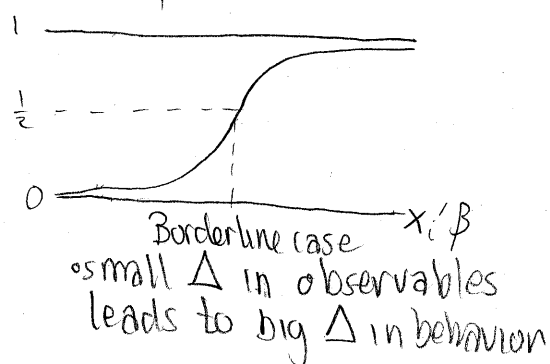 1
1/2
0
xᵢ'β
Borderline case
•small Δ in observables
leads to big Δ in behavior